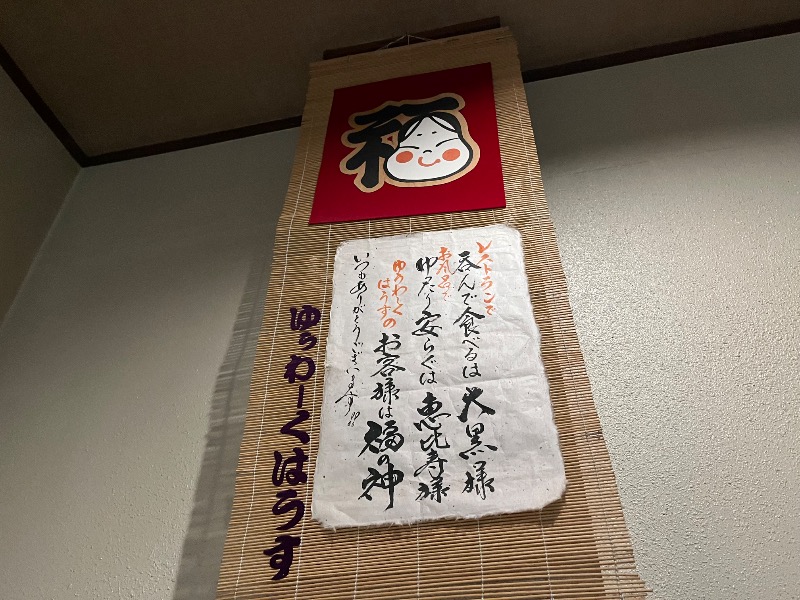 福
レストランで
呑んで食べるは大黒様
お風呂で
ゆったり安らぐは恵比寿様
ゆぅわーくはうすの
お客様は福の神
いつもありがとうございます
ゆぅわーくはうす